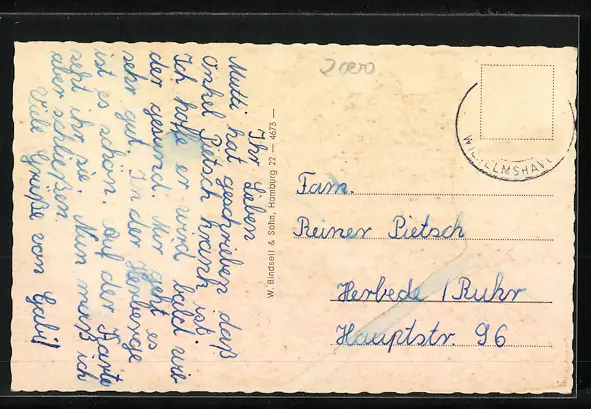 Ihr Lieben
Mutti hat geschrieben daß
Onkel Pietsch krank ist.
Ich hoffe er wird bald wie-
der gesund. Mir geht es
sehr gut. In der Herberge
ist es schön. Auf der Karte
seht ihr sie. Nun muß ich
aber schließen
Viele Grüße von Gabi!
W. Bindseil & Sohn, Hamburg 22 — 4673 —
WILHELMSHAV
Fam.
Reiner Pietsch
Herbede / Ruhr
Hauptstr. 96